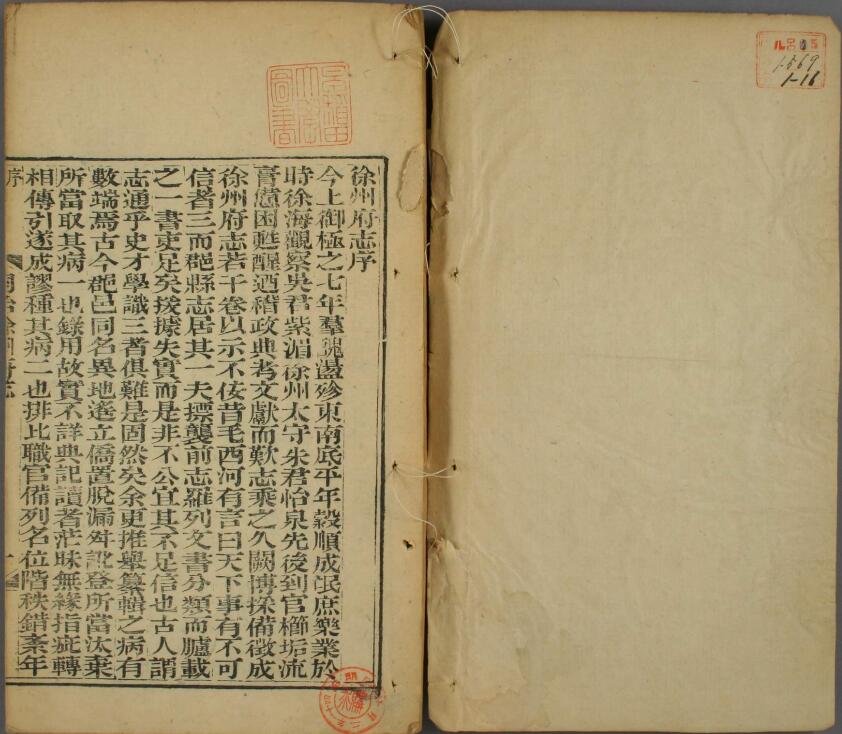 徐州府志序
今上御極之七年羣醜盪殄東南底平年穀順成氓庶樂業於
時徐海觀察吳君紫湄徐州太守朱君怡泉先後到官櫛垢流
膏憊困甦醒迺稽政典考文獻而歎志乘之久闕博採備徵成
徐州府志若干卷以示不佞昔毛西河有言曰天下事有不可
信者三而郡縣志居其一夫摽襲前志羅列文書分類而臚載
之一書吏足矣援據失實而是非不公宜其不足信也古人謂
志通乎史才學識三者俱難是固然矣余更推舉纂輯之病有
數端焉古今郡邑同名異地遙立僑置脫漏舛訛登所當汰棄
所當取其病一也錄用故實不詳典記讀者茫昧無緣指疵轉
相傳引遂成謬種其病二也排比職官備列名位階秩錯紊年
序
同治徐州府志
一
1569
1-16